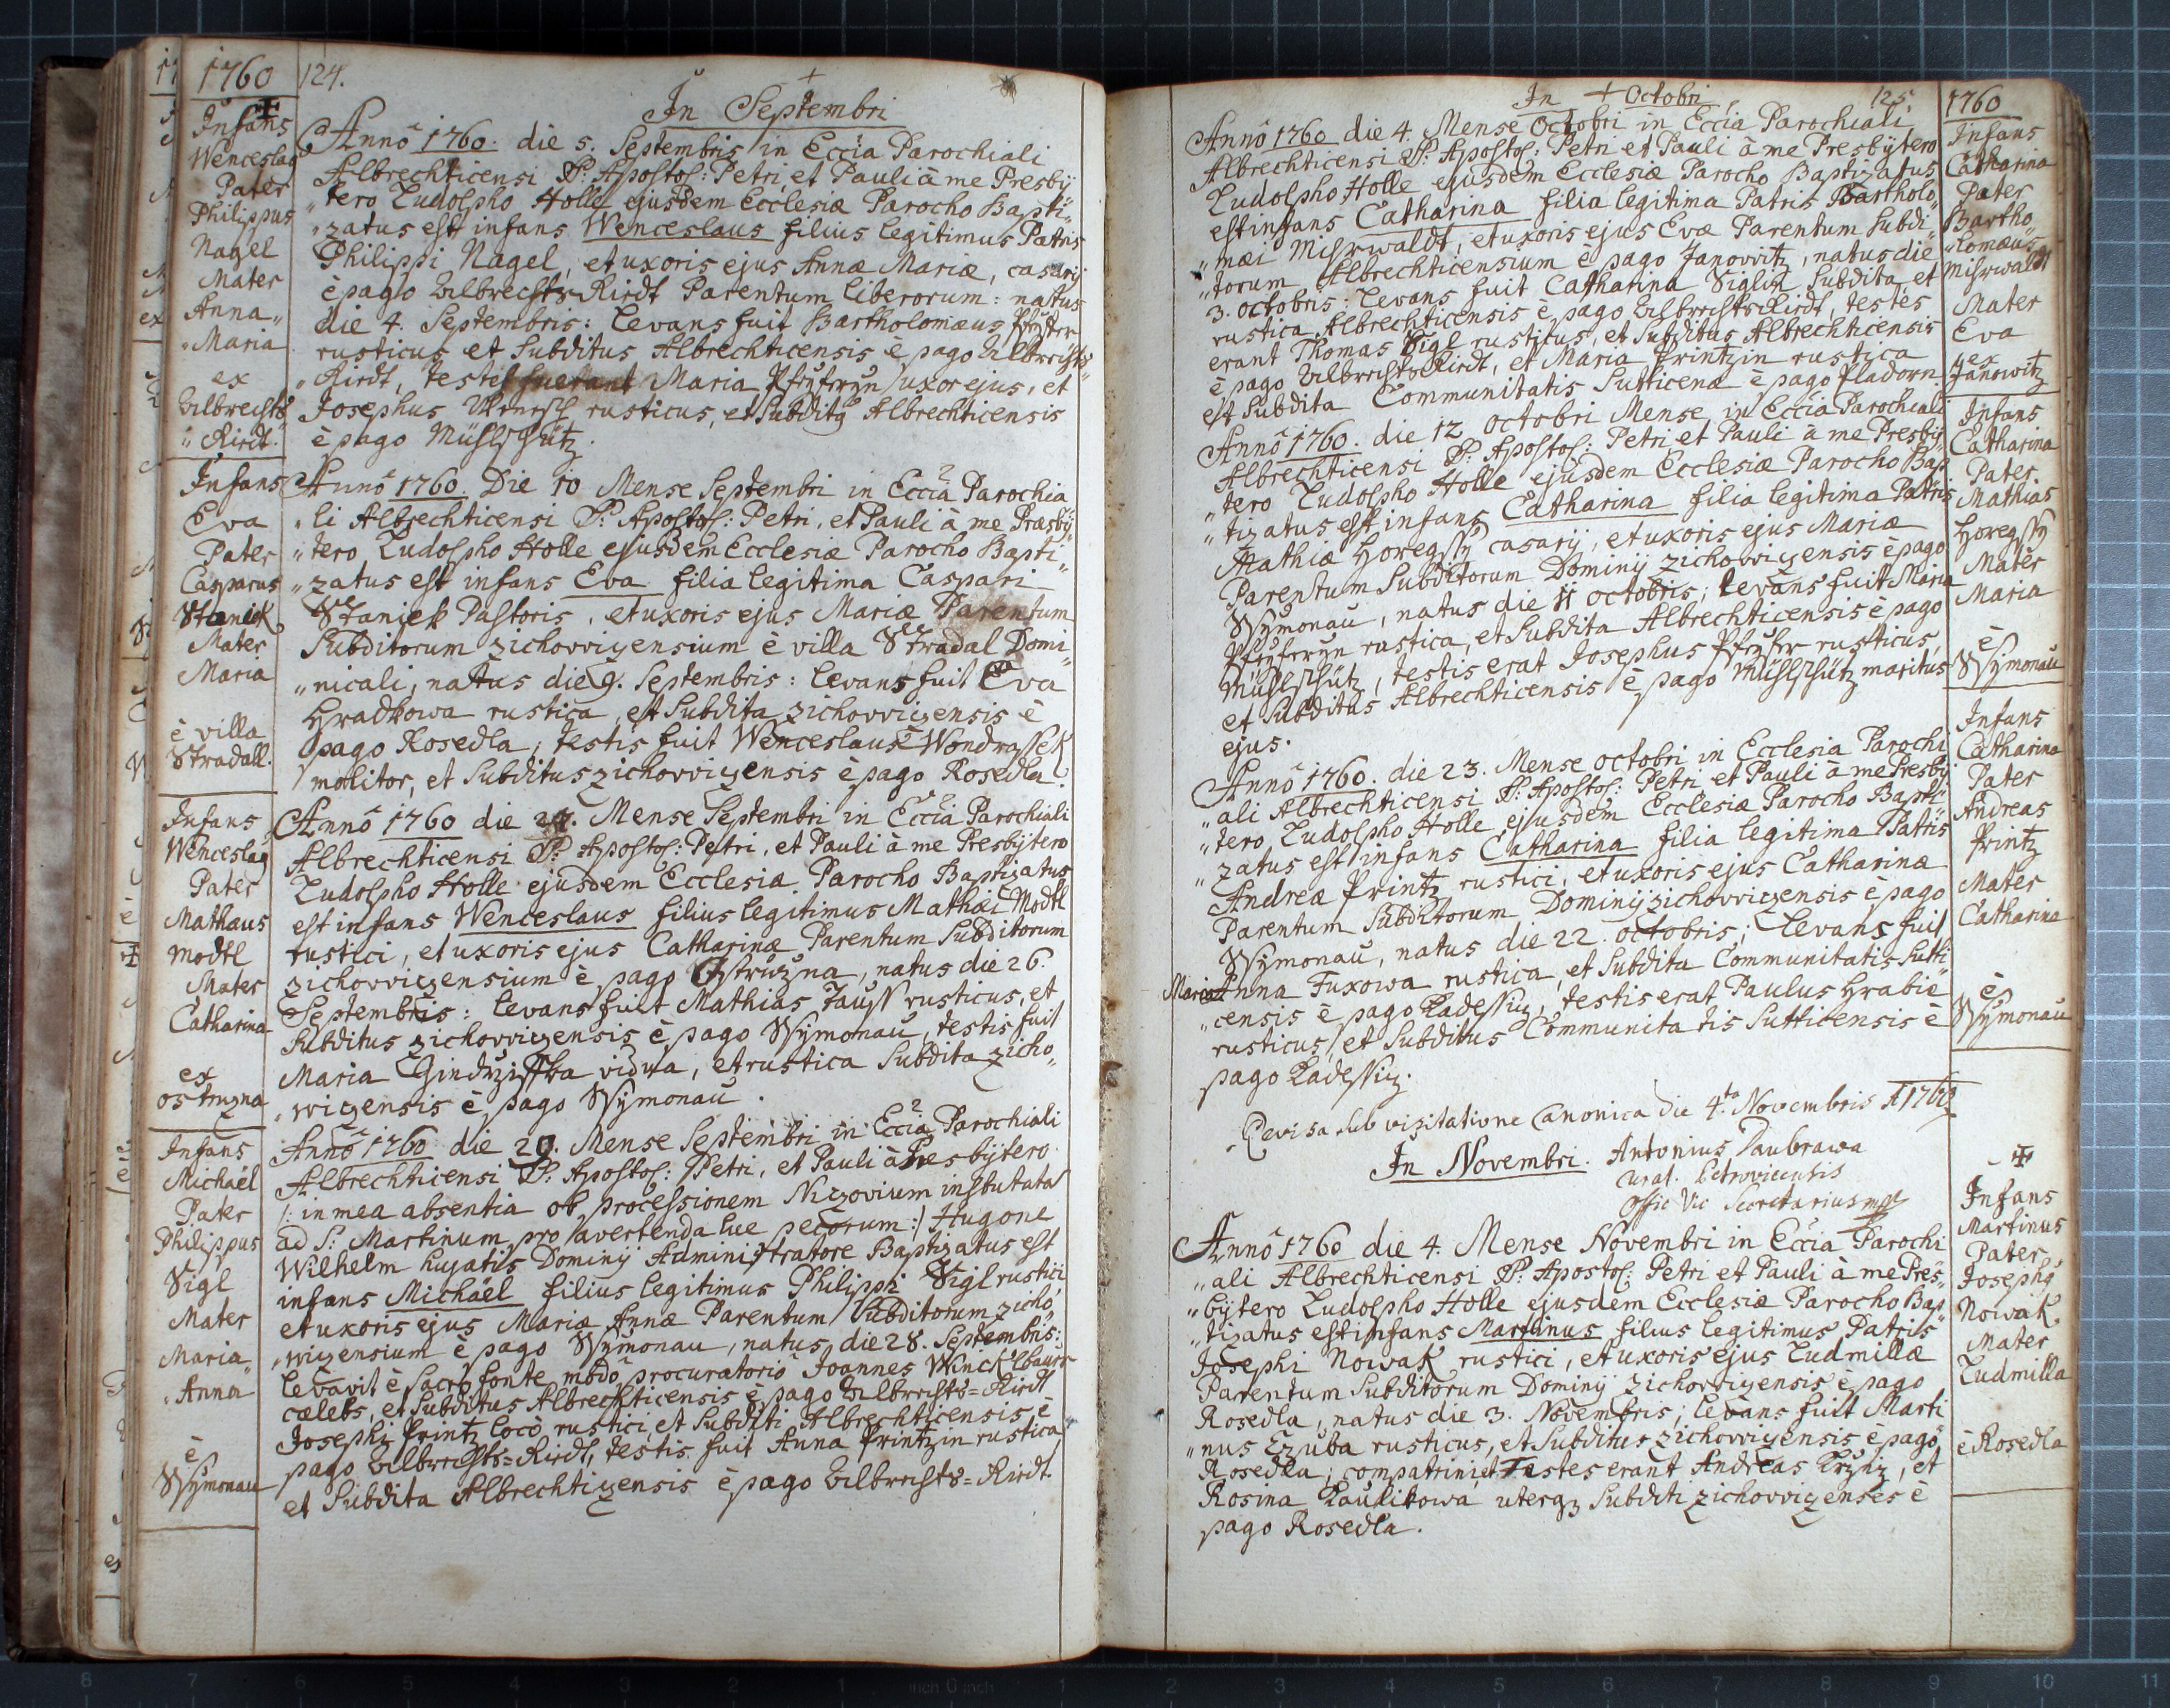 1760
124.
Infans
Wenceslaꝰ
Pater
Philippus
Nagel
Mater
Anna„
„Maria
ex
Albrechts„
„Riedt.
In Septembri
Annô 1760. die 5. Septembris in Eccĩa Parochiali
Albrechticensi SS. Apostol: Petri et Pauli à me Presbÿ„
„tero Ludolpho Holle ejusdem Ecclesiæ Parocho Bapti„
„zatus est infans Wenceslaus filius legitimus Patris
Philippi Nagel, et uxoris ejus Annæ Mariæ, casarij
è pago Albrechts-Riedt Parentum liberorum: natus
die 4. Septembris: levans fuit Bartholomæus
rusticus et Subditus Albrechticensis è pago Albrechts„
„Riedt, testes fuerant Maria uxor ejus, et
Josephus rusticus, et Subditꝰ Albrechticensis
è pago Mühlschütz.
Infans
Eva
Pater
Casparus
Staniek
Mater
Maria
è villa
Stradall.
Annô 1760. Die 10 Mense Septembri in Eccĩa Parochia
„li Albrechticensi SS. Apostol: Petri, et Pauli à me Præsbÿ„
„tero Ludolpho Holle ejusdem Ecclesiæ Parocho Bapti„
„zatus est infans Eva filia legitima Caspari
Staniek Pastoris, et uxoris ejus Mariæ Parentum
Subditorum zichovvizensium è villa Stradal Domi„
„nicali, natus die 9. Septembris: levans fuit Eva
Hradkowa rustica, et Subdita zichovvizensis è
pago Rosedla, testis fuit Wenceslaus Wondrassek
molitor, et Subditus zichovvizensis è pago Rosedla.
Infans
Wenceslaꝰ
Pater
Mathæus
Modtl
Mater
Catharina
ex
ostruzna
Annô 1760 die 27. Mense Septembri in Eccĩa Parochiali
Albrechticensi SS. Apostol: Petri, et Pauli à me Presbÿtero
Ludolpho Holle ejusdem Ecclesiæ Parocho Baptizatus
est infans Wenceslaus filius legitimus Mathæi Modtl
rustici, et uxoris ejus Catharinæ Parentum Subditorum
zichovvizensium è pago Ostružna, natus die 26.
Septembris: levans fuit Mathias Jauss rusticus, et
Subditus zichovvizensis è pago Wÿmonau, testis fuit
Maria vidua, et rustica Subdita zicho„
„wizensis è pago Wÿmonau.
Infans
Michaël
Pater
Philippus
Sigl
Mater
Maria„
„Anna
è
Wÿmonau
Annô 1760 die 29. Mense Septembri in Eccĩa Parochiali
Albrechticensi SS. Apostol: Petri, et Pauli à Presbÿtero
/: in mea absentia ob processionem Nizovium institutam
ad S: Martinum pro avertenda lue pecorum :/ Hugone
Wilhelm hujatis Dominÿ Administratore Baptizatus est
infans Michaël filius legitimus Philippi Sigl rustici,
et uxoris ejus Mariæ Annæ Parentum Subditorum zicho„
„wizensium è pago Wÿmonau, natus die 28. Septembris:
levavit è Sacro fonte mõdo procuratorio Joannes Winck'lbauer
cælebs, et Subditus Albrechticensis è pago Albrechts=Riedt
Josephi Printz locô rustici, et Subditi Albrechticensis è
pago Albrechts=Riedt, testis fuit Anna Printzin rustica
et Subdita Albrechtizensis è pago Albrechts=Riedt.
In Octobri
125.
1760
Annô 1760 die 4. Mense Octobri in Eccĩa Parochiali
Albrechticensi SS. Apostol: Petri et Pauli à me Presbÿtero
Ludolpho Holle ejusdem Ecclesiæ Parocho Baptizatus
est infans Catharina filia legitima Patris Bartholo„
„mæi Mihrwaldt, et uxoris ejus Evæ Parentum Subdi„
„torum Albrechticensium è pago Janovvitz, natus die
3. Octobris: levans fuit Catharina Siglin Subdita et
rustica Albrechticensis è pago Albrechts-Riedt, testes
erant Thomas Sigl rusticus, et Subditus Albrechticensis
è pago Albrechts-Riedt, et Maria Printzin rustica
est Subdita Communitatis Sutticenæ è pago Pladorn.
Infans
Catharina
Pater
Bartho„
„lomæus
Mihrwaldt
Mater
Eva
ex
Janowitz
Annô 1760. die 12 Octobri Mense in Eccĩa Parochiali
Albrechticensi SS. Apostol: Petri et Pauli à me Presbÿ„
„tero Ludolpho Holle ejusdem Ecclesiæ Parocho Bap„
„tizatus est infans Catharina filia legitima Patris
Mathiæ casarij, et uxoris ejus Mariæ
Parentum Subditorum Dominÿ zichovvizensis è pago
Wÿmonau, natus die 11 octobris; levans fuit Maria
rustica, et Subdita Albrechticensis è pago
Mühlschütz, testis erat Josephus rusticus,
et Subditus Albrechticensis è pago Mühlschütz maritus
ejus.
Infans
Catharina
Pater
Mathias
Mater
Maria
è
Wÿmonau
Annô 1760. die 23. Mense octobri in Ecclesia Parochi
„ali Albrechticensi SS. Apostol: Petri et Pauli à me Presbÿ
„tero Ludolpho Holle ejusdem Ecclesiæ Parocho Bapti
„zatus est infans Catharina filia legitima Patris
Andreæ Printz rustici, et uxoris ejus Catharinæ
Parentum Subditorum Dominÿ zichovvizensis è pago
Wÿmonau, natus die 22. octobris; levans fuit
Maria Anna Fuxowa rustica, et Subdita Communitatis Sutti
„censis è pago Kadessiz, testis erat Paulus Hrabie
rusticus, et Subditus Communitatis Sutticensis è
pago Kadessiz.
Infans
Catharina
Pater
Andreas
Printz
Mater
Catharina
è
Wÿmonau
Revisa sub visitatione Canonica die 4.ta Novembris A 1760
In Novembri.
Antonius Daubrawa
Curat. Petrovicensis
Offic Vic Secretarius mpr
Annô 1760 die 4. Mense Novembri in Eccĩa Parochi
„ali Albrechticensi SS. Apostol: Petri et Pauli à me Pres„
„bÿtero Ludolpho Holle ejusdem Ecclesiæ Parocho Bap
„tizatus est infans Martinus filius legitimus Patris
Josephi Nowak rustici, et uxoris ejus Ludmillæ
Parentum Subditorum Dominÿ zichovvizensis è pago
Rosedla, natus die 3. Novembris; levans fuit Marti
„nus Czuba rusticus, et Subditus zichovvizensis è pago
Rosedla; compatrini, et Testes erant Andreas et
Rosina Kaulikowa uterqꝫ Subditi zichovvizenses è
pago Rosedla.
Infans
Martinus
Pater
Josephꝰ
Nowak
Mater
Ludmilla
è Rosedla